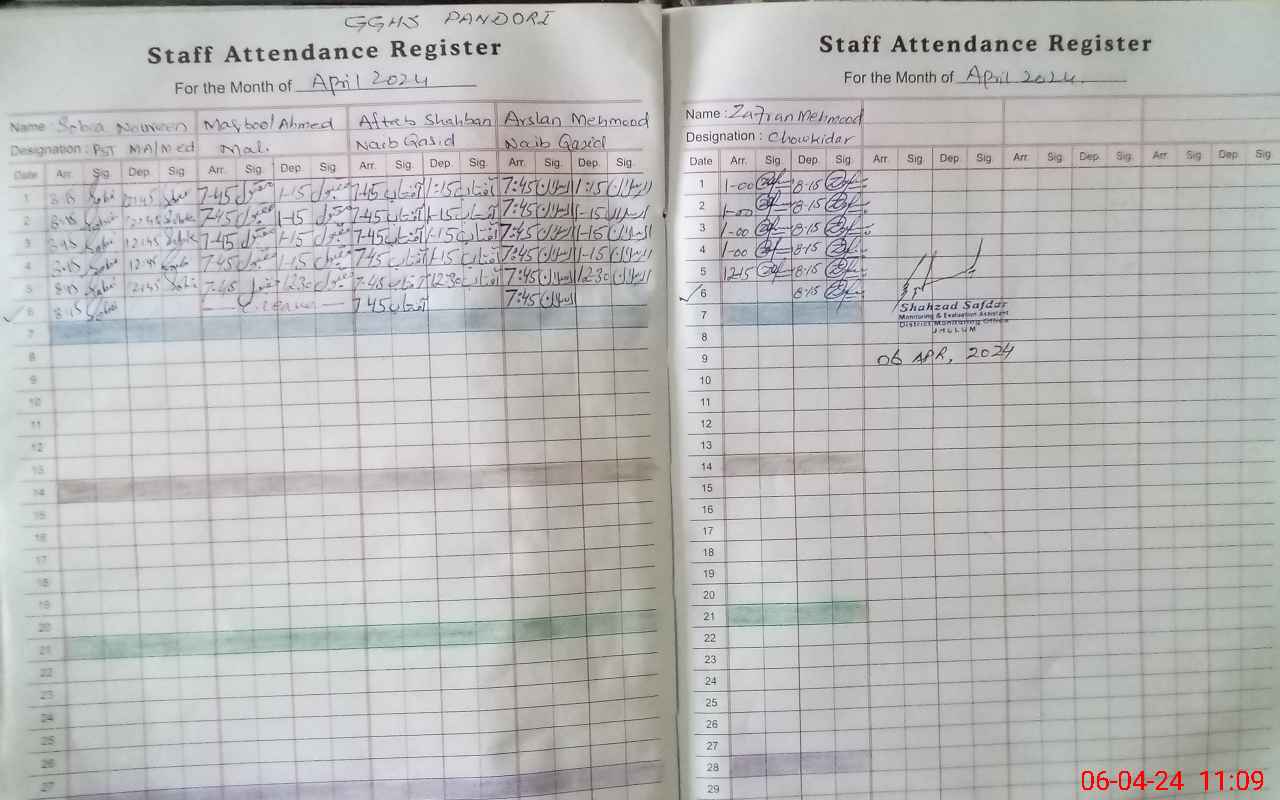 GGHS PANDORI
Staff Attendance Register
For the Month of April 2024
Name : Sobia Noureen Maqbool Ahmed Aftab Shahban Arslan Mehmood
Designation : PST MA/M.ed Mali Naib Qasid Naib Qasid
Date Arr. Sig. Dep. Sig. Arr. Sig. Dep. Sig. Arr. Sig. Dep. Sig. Arr. Sig. Dep. Sig.
1 8-15 12:45 7-45 مقبول 1-15 مقبول 7-45 آفتاب 1:15 آفتاب 7:45 ارسلان 1:15 ارسلان
2 8-15 12:45 7-45 مقبول 1-15 مقبول 7-45 آفتاب 1-15 آفتاب 7:45 ارسلان 1-15 ارسلان
3 8-15 12:45 7-45 مقبول 1-15 مقبول 7-45 آفتاب 1-15 آفتاب 7:45 ارسلان 1-15 ارسلان
4 8-15 12:45 7-45 مقبول 1-15 مقبول 7-45 آفتاب 1-15 آفتاب 7:45 ارسلان 1-15 ارسلان
5 8-15 12:45 7-45 مقبول 12:30 مقبول 7-45 آفتاب 12:30 آفتاب 7:45 ارسلان 12:30 ارسلان
6 8-15 7-45 آفتاب 7:45 ارسلان
7
8
9
10
11
12
13
14
15
16
17
18
19
20
21
22
23
24
25
26
27
Staff Attendance Register
For the Month of April 2024
Name : Zafran Mehmood
Designation : Chowkidar
Date Arr. Sig. Dep. Sig. Arr. Sig. Dep. Sig. Arr. Sig. Dep. Sig. Arr. Sig Dep Sig
1 1-00 8-15
2 1-00 8-15
3 1-00 8-15
4 1-00 8-15
5 12-15 8-15
6 8-15
Shahzad Safdar
Monitoring & Evaluation Assistant
District Monitoring Office
JHELUM
7
8
9 06 APR, 2024
10
11
12
13
14
15
16
17
18
19
20
21
22
23
24
25
26
27
28
29
06-04-24 11:09